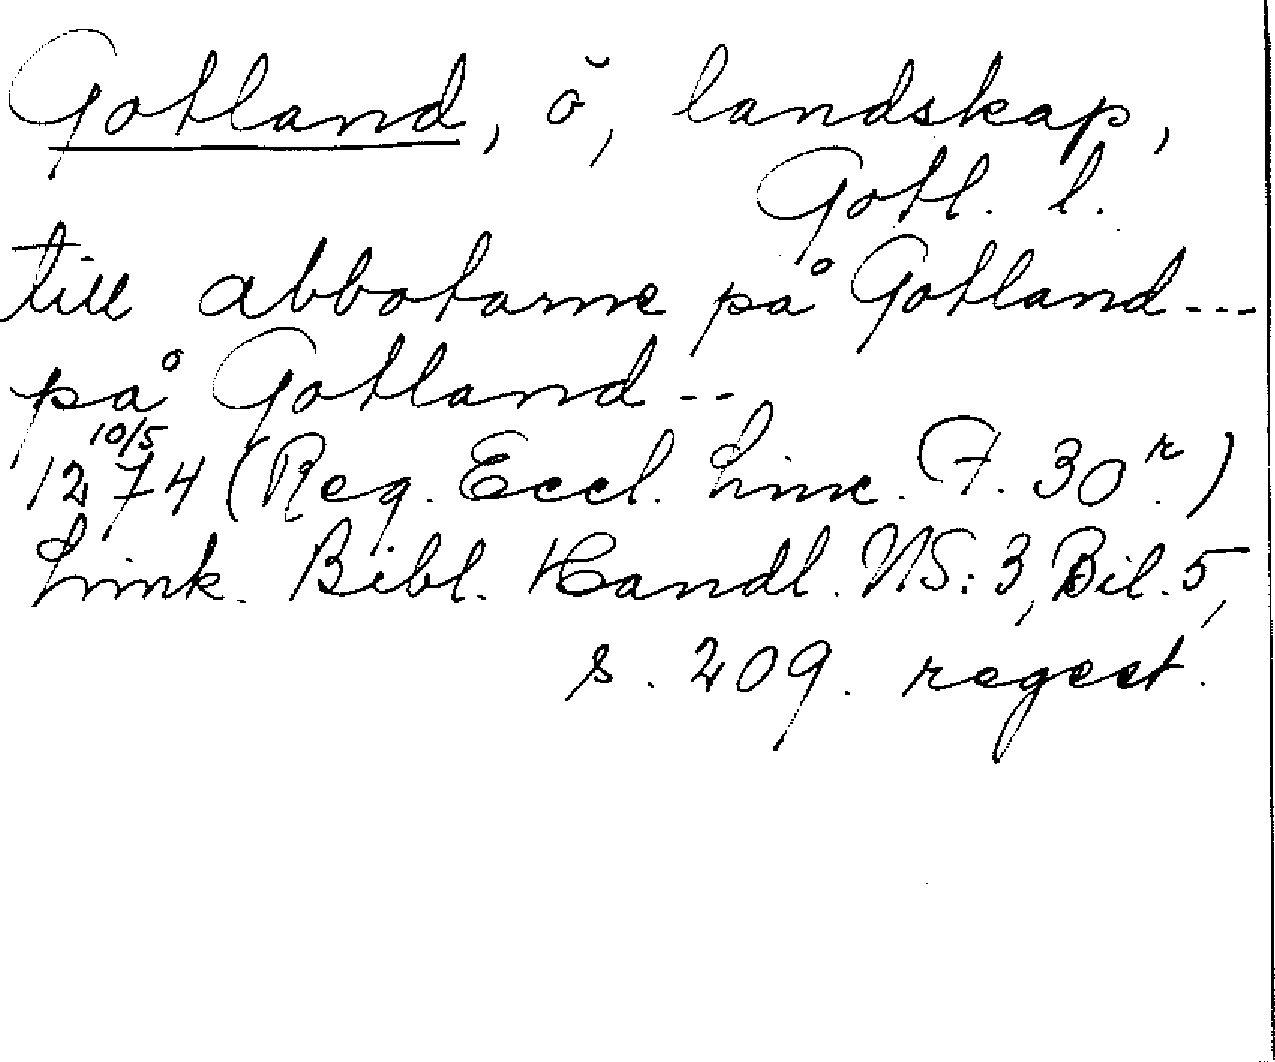 Gotland, ö, landskap,
Gotl. l.
till abbotarne på Gotland---
på Gotland--
1274 10/5 (Reg. Eccl. Linc. F. 30r.)
Link. Bibl. Handl. NS: 3, Bil. 5,
s. 209. regest.